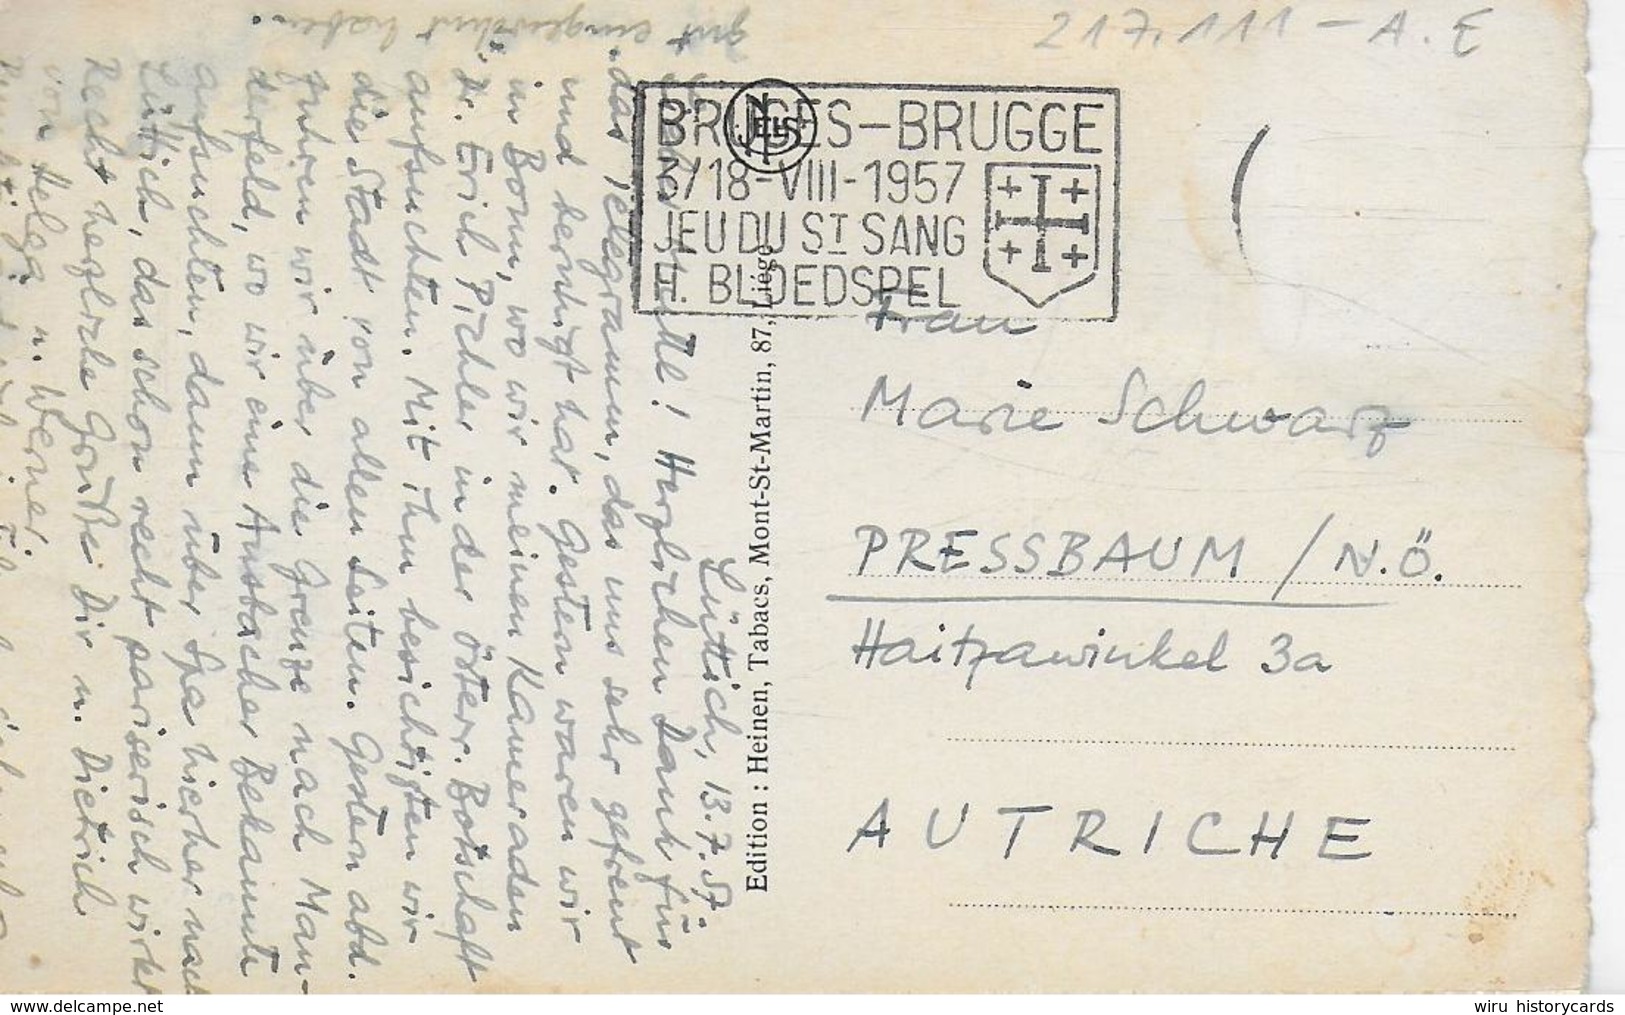 217.111 - A.E
BRUGES-BRUGGE
3/18-VIII-1957
JEU DU ST SANG
H. BLOEDSPEL
NELS
Lüttich, 13.7.57.
! Herzlichen Dank für
das Telegramm, das uns sehr gefreut
und beruhigt hat. Gestern waren wir
in Bonn, wo wir meinen Kameraden
Dr. Erich Pichler in der österr. Botschaft
aufsuchten. Mit ihm besichtigten wir
die Stadt von allen Seiten. Gestern abd.
fuhren wir über die Grenze nach Man-
derfeld, wo wir eine Ansbacher Bekannte
aufsuchten, dann über Spa hierher nach
Lüttich, das schon recht pariserisch wirkt
Recht herzliche Grüße Dir u. Dietrich
von Helga u. Werner.
gut eingewöhnt haben.
Edition : Heinen, Tabacs, Mont-St-Martin, 87, Liége
Frau
Marie Schwarz
PRESSBAUM / N.Ö.
Haitzawinkel 3a
AUTRICHE
delcampe.net
wiru historycards